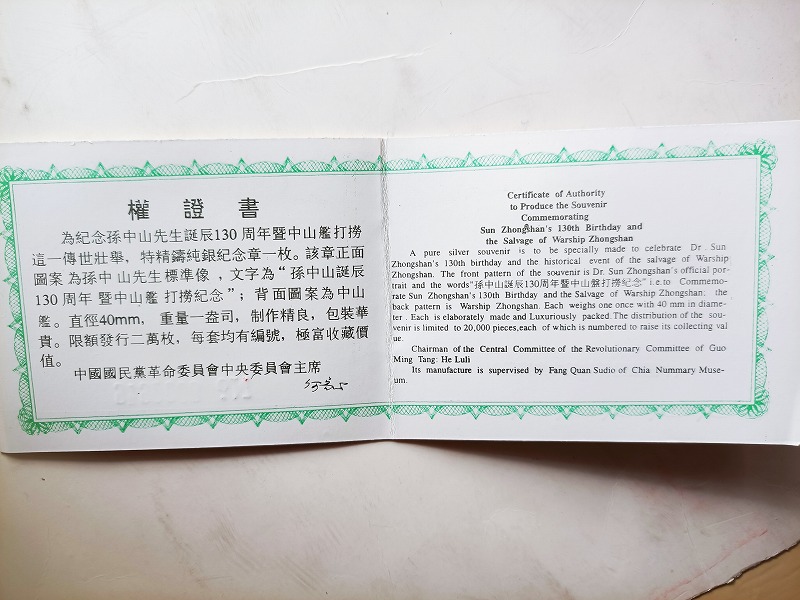 權證書
為紀念孫中山先生誕辰130周年暨中山艦打撈
這一傳世壯舉，特精鑄純銀紀念章一枚。該章正面
圖案為孫中山先生標準像，文字為“孫中山誕辰
130周年暨中山艦打撈紀念”；背面圖案為中山
艦。直徑40mm，重量一盎司，制作精良，包裝華
貴。限額發行二萬枚，每套均有編號，極富收藏價
值。
中國國民黨革命委員會中央委員會主席
Certificate of Authority
to Produce the Souvenir
Commemorating
Sun Zhongshan's 130th Birthday and
the Salvage of Warship Zhongshan
A pure silver souvenir is to be specially made to celebrate Dr. Sun
Zhongshan's 130th birthday and the historical event of the salvage of Warship
Zhongshan. The front pattern of the souvenir is Dr. Sun Zhongshan's official por-
trait and the words"孫中山誕辰130周年暨中山盤打撈紀念" i.e.to Commemo-
rate Sun Zhongshan's 130th Birthday and the Salvage of Warship Zhongshan; the
back pattern is Warship Zhongshan. Each weighs one once with 40 mm in diame-
ter. Each is elaborately made and Luxuriously packed.The distribution of the sou-
venir is limited to 20,000 pieces,each of which is numbered to raise its collecting val
ue.
Chairman of the Central Committee of the Revolutionary Committee of Guo
Ming Tang: He Luli
Its manufacture is supervised by Fang Quan Sudio of Chia Nummary Muse-
um.